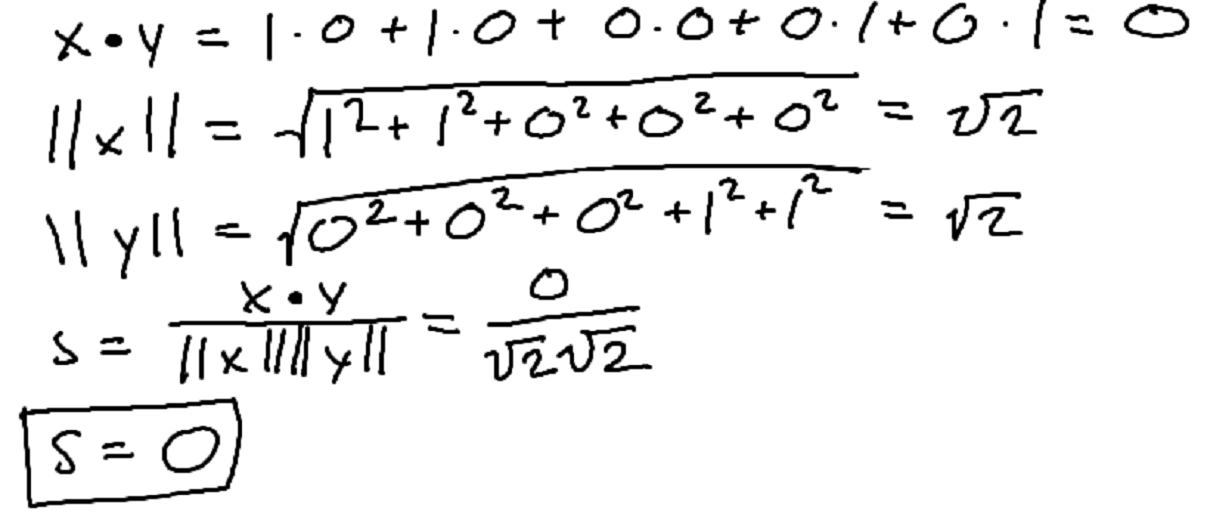 x • y = 1 · 0 + 1 · 0 + 0 · 0 + 0 · 1 + 0 · 1 = 0
||x|| = √(1² + 1² + 0² + 0² + 0²) = √2
||y|| = √(0² + 0² + 0² + 1² + 1²) = √2
s = (x • y)/(||x|| ||y||) = 0/(√2√2)
s = 0